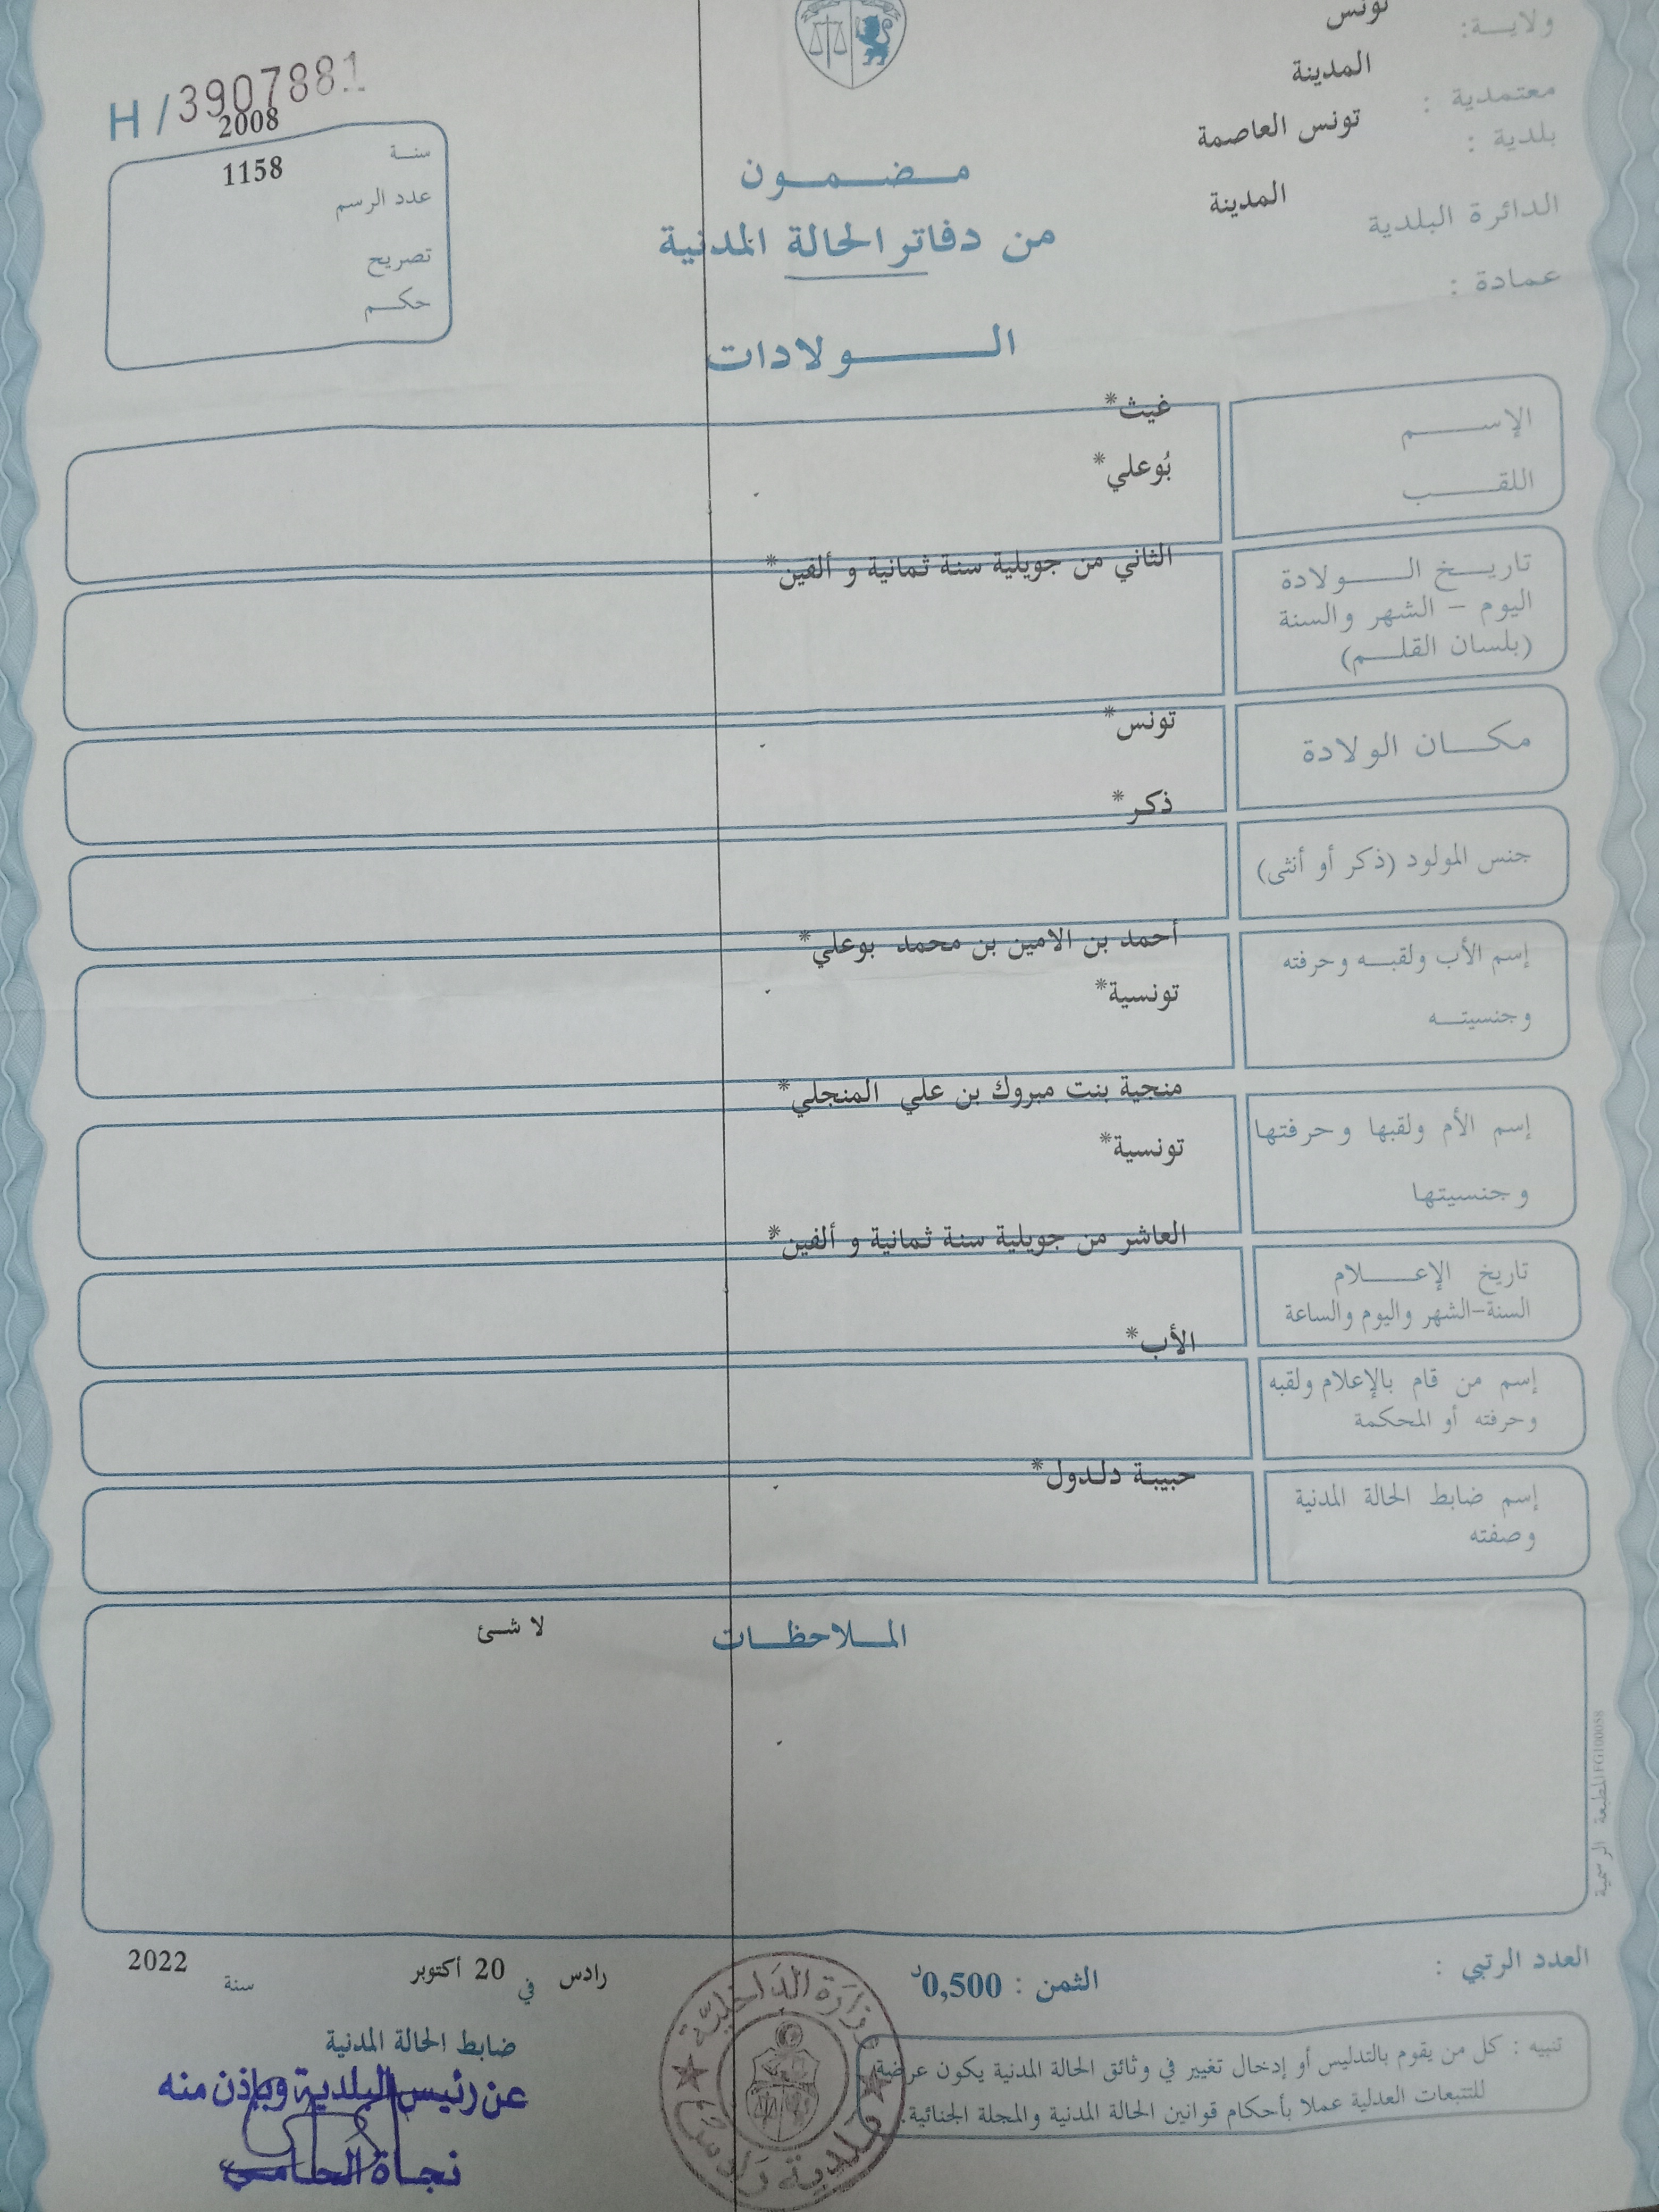 ولايـــة: تونس
معتمدية : المدينة
بلدية : تونس العاصمة
الدائرة البلدية المدينة
عمادة :
H/3907881
سنـة 2008
عدد الرسم 1158
تصريح
حكـــم
مـضـمـون
من دفاتر الحالة المدنية
الـــولادات
الإســـــم غيث*
اللقـــــب بُوعلي*
تاريـــخ الـــــولادة الثاني من جويلية سنة ثمانية و ألفين*
اليوم - الشهر والسنة
(بلسان القلـــم)
مكـــان الولادة تونس*
جنس المولود (ذكر أو أنثى) ذكر*
إسم الأب ولقبـــه وحرفته أحمد بن الامين بن محمد بوعلي*
وجنسيتـــه تونسية*
إسم الأم ولقبها وحرفتها منجية بنت مبروك بن علي المنجلي*
وجنسيتها تونسية*
تاريخ الإعـــــلام العاشر من جويلية سنة ثمانية و ألفين*
السنة-الشهر واليوم والساعة
إسم من قام بالإعلام ولقبه الأب*
وحرفته أو المحكمة
إسم ضابط الحالة المدنية حبيبة دلدول*
وصفته
المـــلاحظـــات لا شئ
المطبعة الرسمية FG100058
العدد الرتبي :
الثمن : 0,500د
رادس في 20 اكتوبر سنة 2022
تنبيه : كل من يقوم بالتدليس أو إدخال تغيير في وثائق الحالة المدنية يكون عرضة
للتتبعات العدلية عملا بأحكام قوانين الحالة المدنية والمجلة الجنائية.
ضابط الحالة المدنية
عن رئيس البلدية وبإذن منه
نجـاة الحـامـي
وزارة الداخلية
بلدية رادس